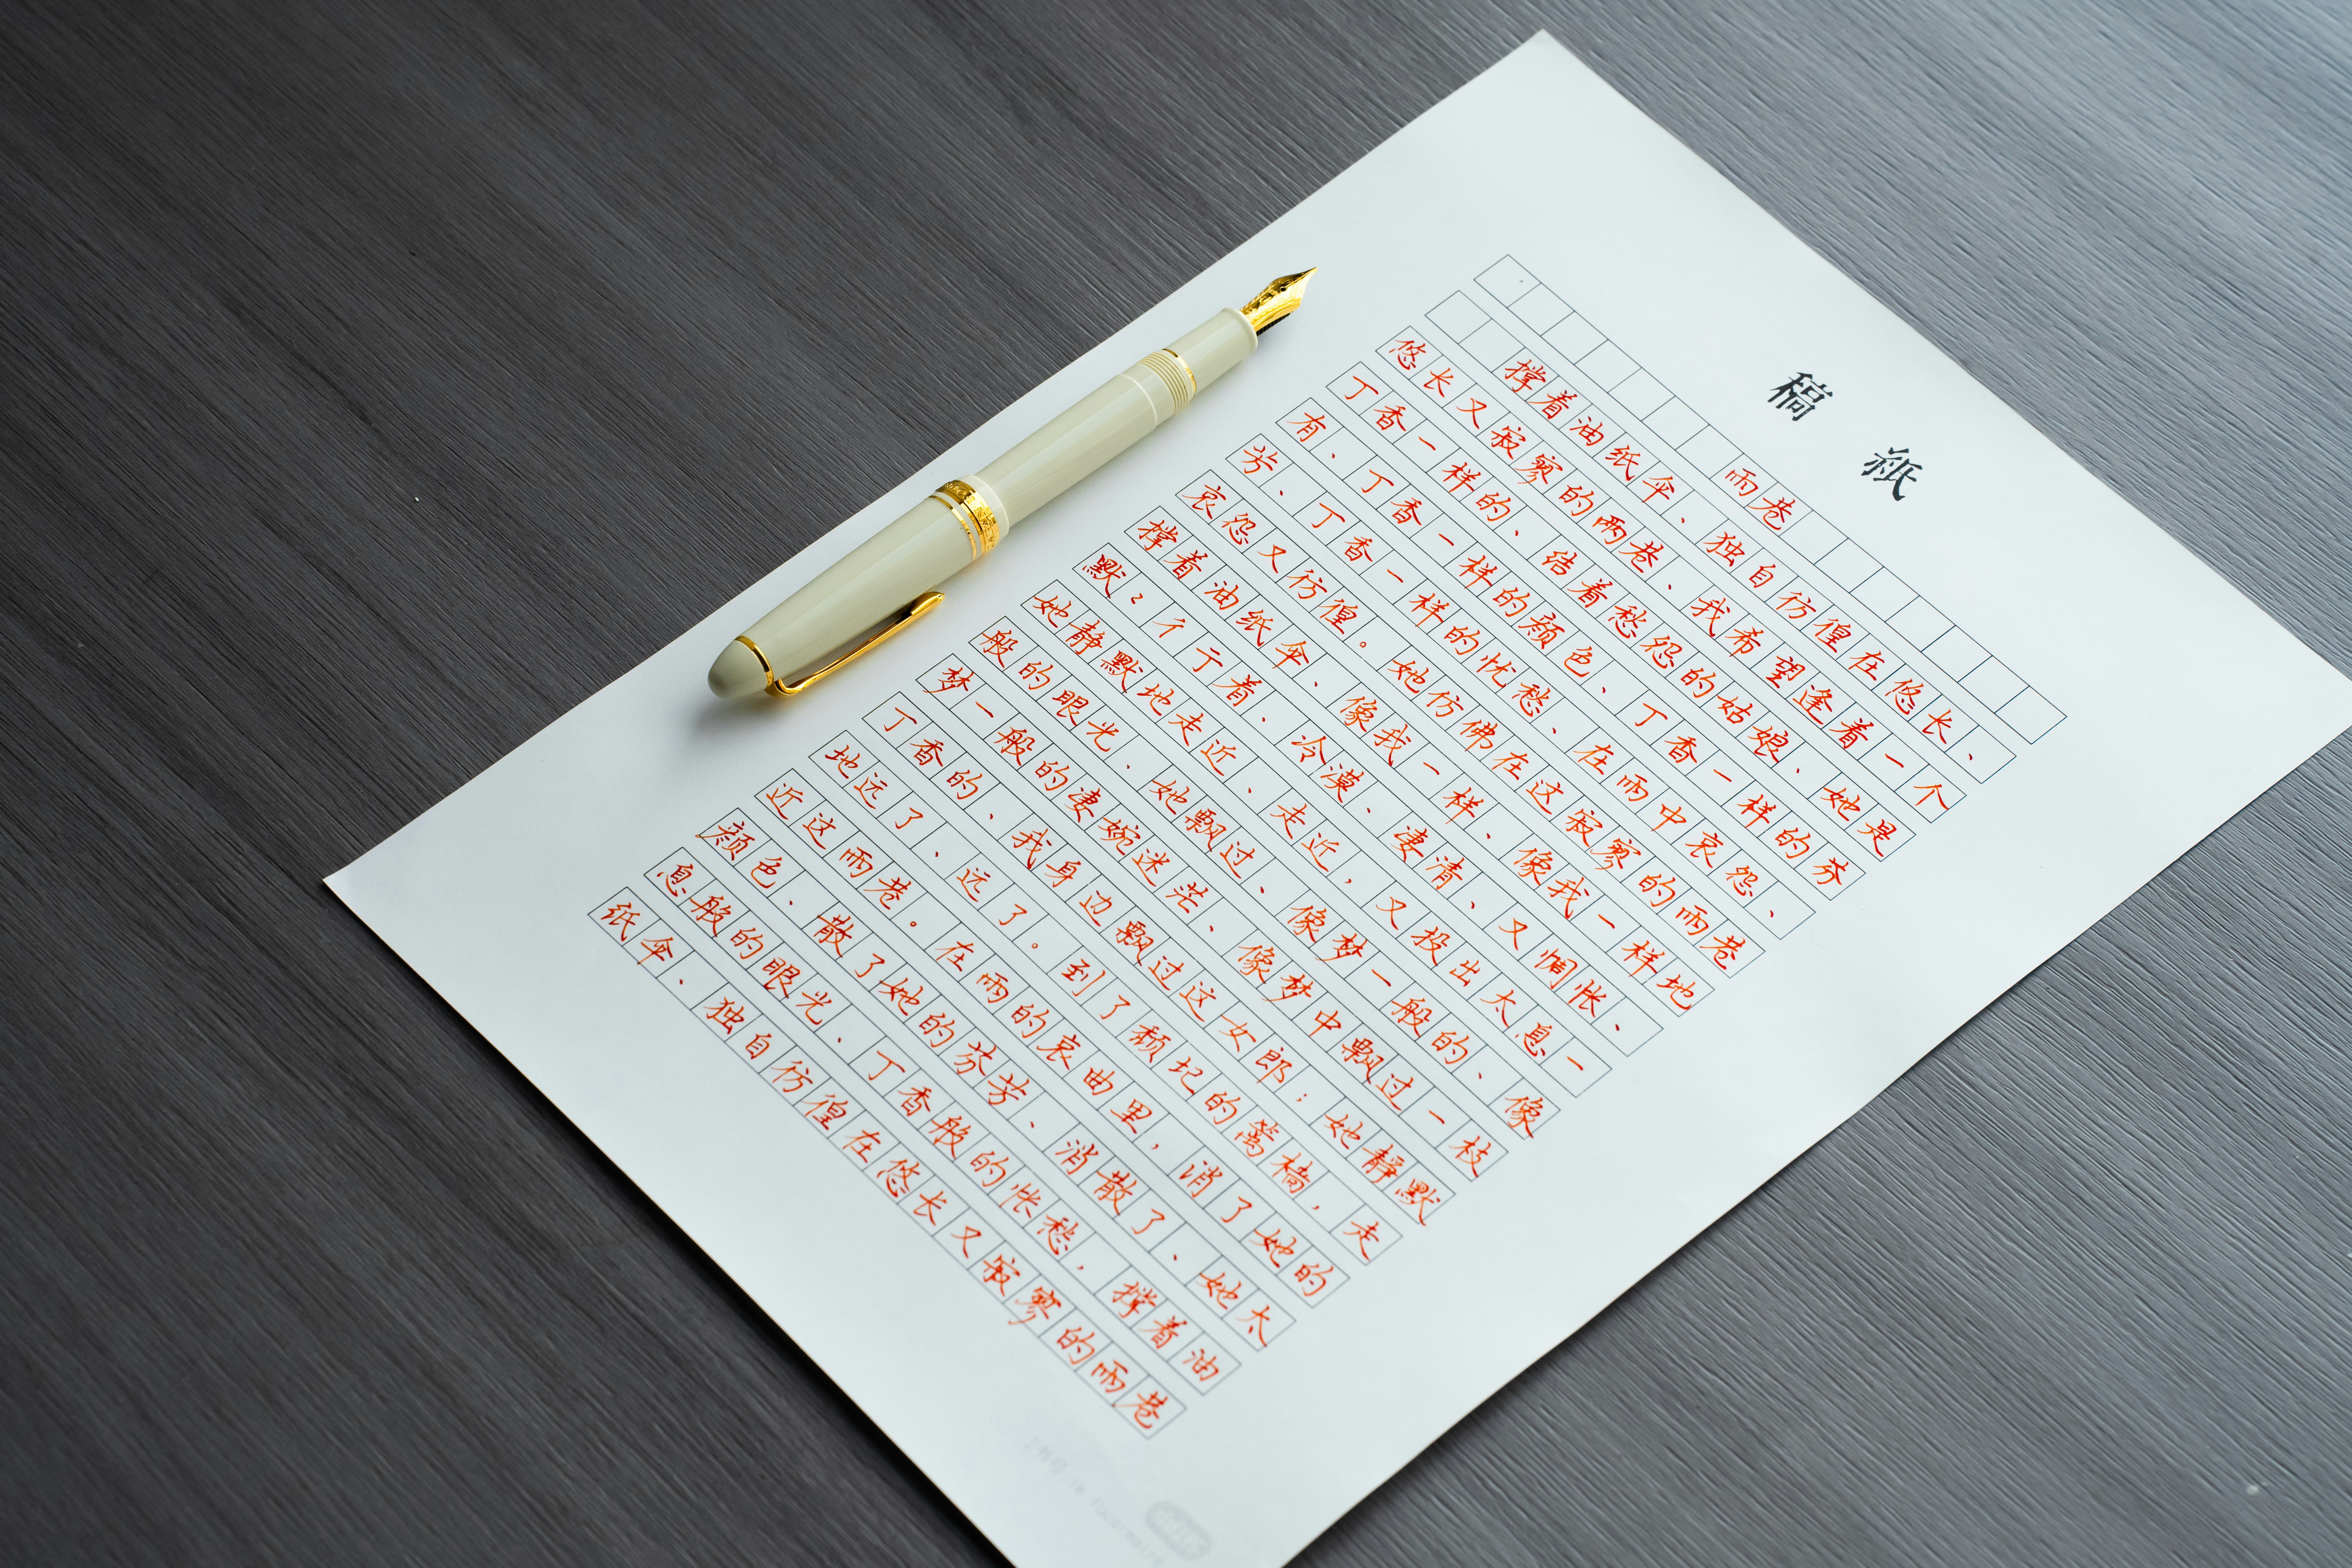 稿 紙
雨巷
撑着油纸伞、独自彷徨在悠长、
悠长又寂寥的雨巷、我希望逢着一个
丁香一样的、结着愁怨的姑娘、她是
有、丁香一样的颜色、丁香一样的芬
芳、丁香一样的忧愁、在雨中哀怨、
哀怨又彷徨。她仿佛在这寂寥的雨巷
撑着油纸伞、像我一样、像我一样地
默ミ彳亍着、冷漠、凄清、又惆怅、
她静默地走近、走近，又投出太息一
般的眼光、她飘过、像梦一般的、像
梦一般的凄婉迷茫、像梦中飘过一枝
丁香的、我身边飘过这女郎；她静默
地远了、远了。到了颓圮的篱墙，走
近这雨巷。在雨的哀曲里，消了她的
颜色、散了她的芬芳、消散了、她太
息般的眼光、丁香般的怅愁，撑着油
纸伞、独自彷徨在悠长又寂寥的雨巷